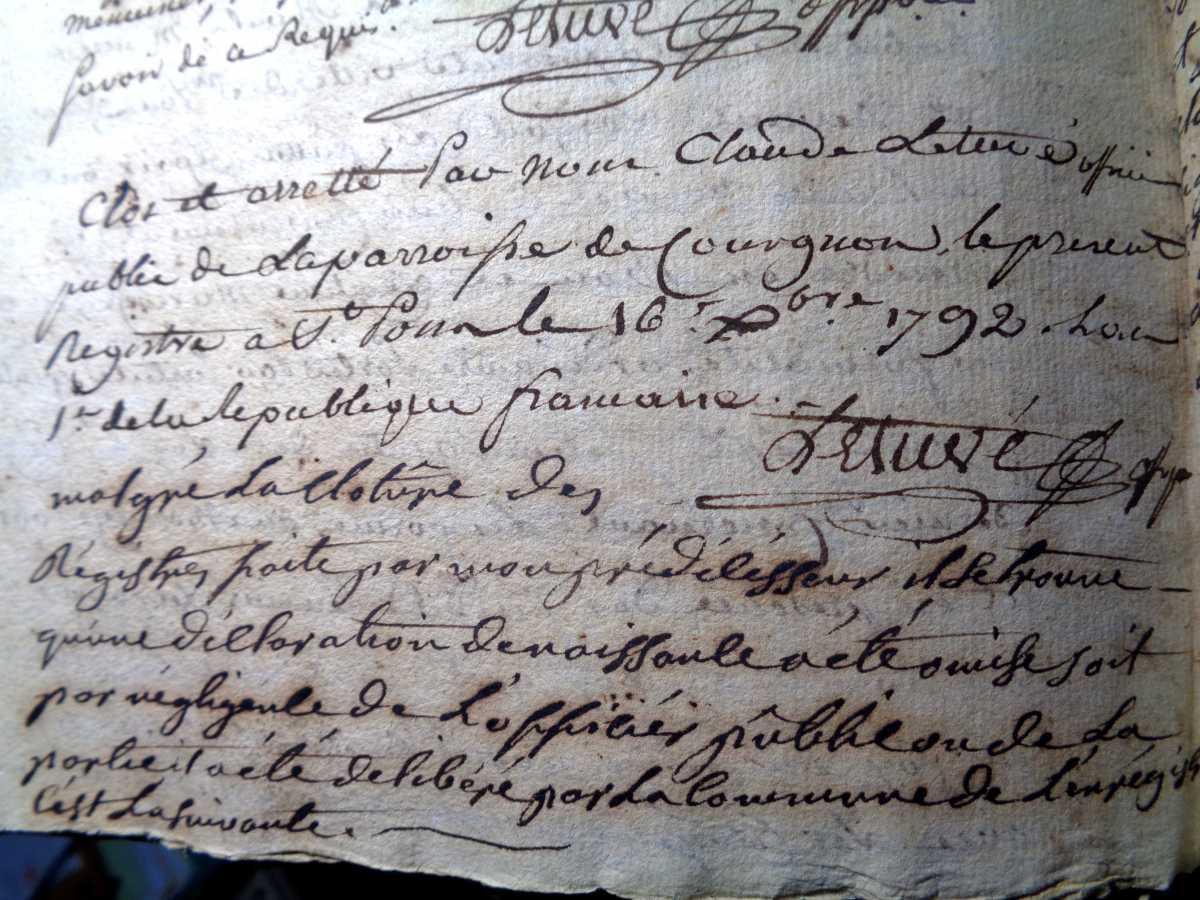 savoir de ce Requis. Leturé
Clos et arretté Par nous Claude Leturé officier
public de Laparroisse de Courgnon, le present
Registre a St. Pons le 16e Xbre 1792. Lan
1er de la republique francaise.
Leturé
malgré La Cloture des
Régistres faite par mon prédécésseur il Se trouve
qu'une déclaration de naissance a été omise soit
par négligence de L'officier público ou de La
partie il a été délibéré par La Commune de L'enrégistr
C'est La suivante.